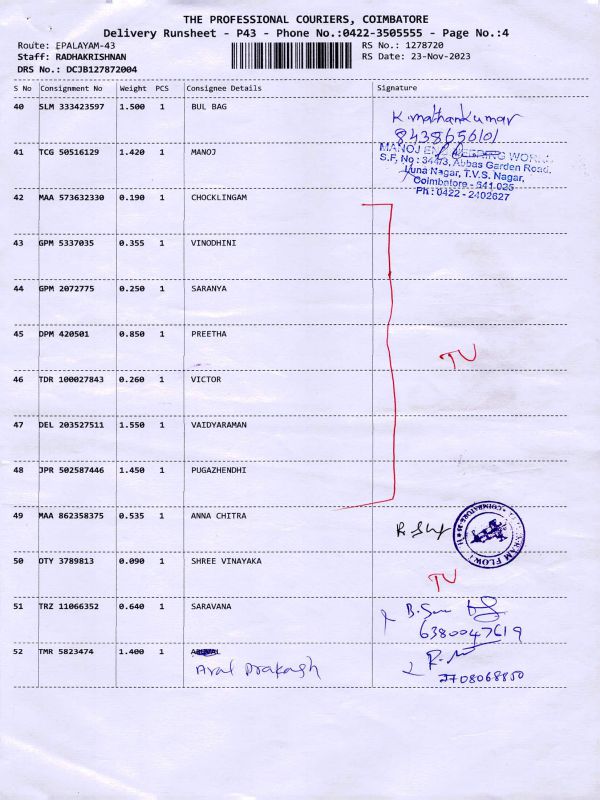 THE PROFESSIONAL COURIERS, COIMBATORE
Delivery Runsheet - P43 - Phone No.:0422-3505555 - Page No.:4
Route: EPALAYAM-43 RS No.: 1278720
Staff: RADHAKRISHNAN RS Date: 23-Nov-2023
DRS No.: DCJB127872004
S No Consignment No Weight PCS Consignee Details Signature
40 SLM 333423597 1.500 1 BUL BAG
K. mathankumar
8438656101
41 TCG 50516129 1.420 1 MANOJ
MANOJ WORKS
S.F, No : 344/3, Abbas Garden Road,
Luna Nagar, T.V.S. Nagar,
Coimbatore - 641 025
Ph : 0422 - 2402627
42 MAA 573632330 0.190 1 CHOCKLINGAM
43 GPM 5337035 0.355 1 VINODHINI
44 GPM 2072775 0.250 1 SARANYA
45 DPM 420501 0.850 1 PREETHA
TU
46 TDR 100027843 0.260 1 VICTOR
47 DEL 203527511 1.550 1 VAIDYARAMAN
48 JPR 502587446 1.450 1 PUGAZHENDHI
49 MAA 862358375 0.535 1 ANNA CHITRA
50 DTY 3789813 0.090 1 SHREE VINAYAKA
TU
51 TRZ 11066352 0.640 1 SARAVANA
6380047619
52 TMR 5823474 1.400 1
Aral Prakash
7708068850